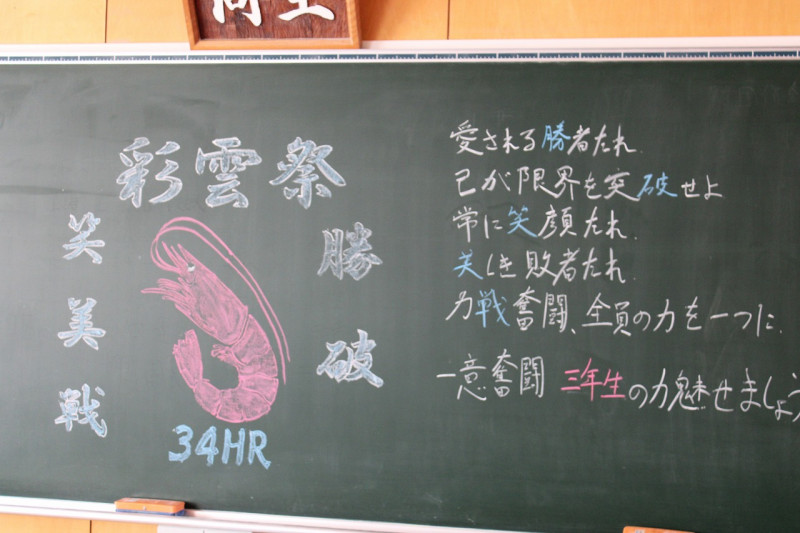 彩雲祭
笑
美
戦
勝
破
34HR
愛される勝者たれ.
己が限界を突破せよ
常に笑顔たれ.
美しき敗者たれ.
力戦奮闘、全員の力を一つに.
一意奮闘 三年生の力魅せましょう